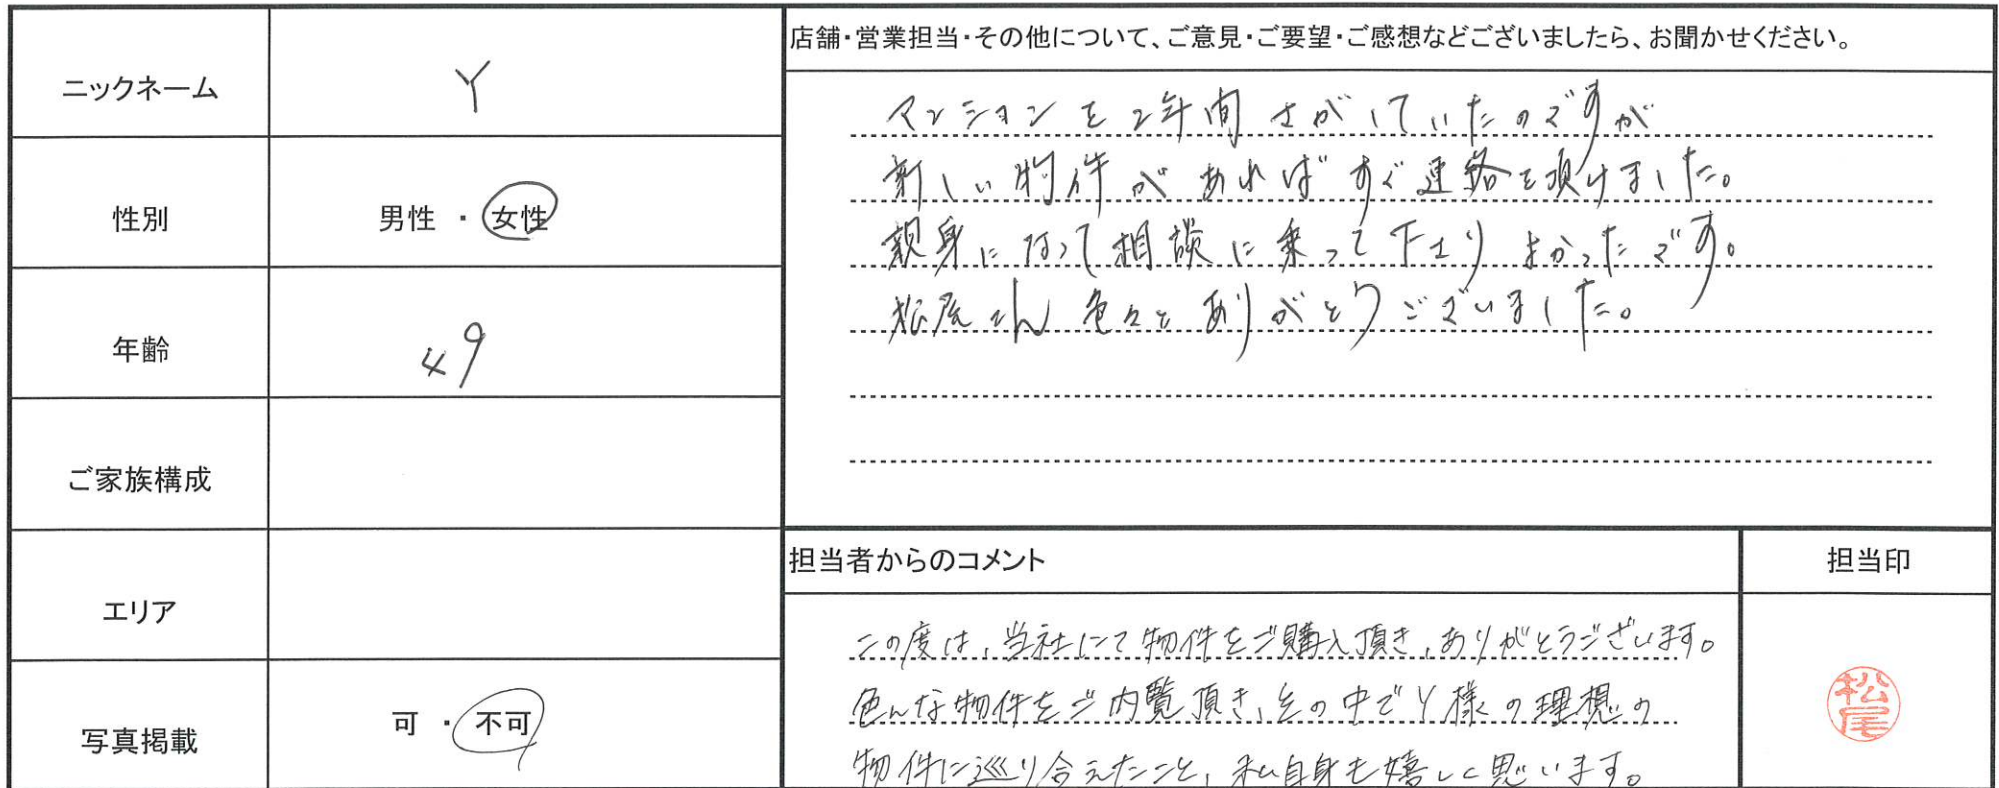 ニックネーム
Y
性別
男性 ・ 女性
年齢
49
ご家族構成
エリア
写真掲載
可 ・ 不可
店舗・営業担当・その他について、ご意見・ご要望・ご感想などございましたら、お聞かせください。
マンションを2年間さがしていたのですが
新しい物件があればすぐ連絡を頂けました。
親身になって相談に乗って下さりよかったです。
松尾さん色々とありがとうございました。
担当者からのコメント
この度は、当社にて物件をご購入頂き、ありがとうございます。
色んな物件をご内覧頂き、その中でY様の理想の
物件に巡り合えたこと、私自身も嬉しく思います。
担当印
松尾